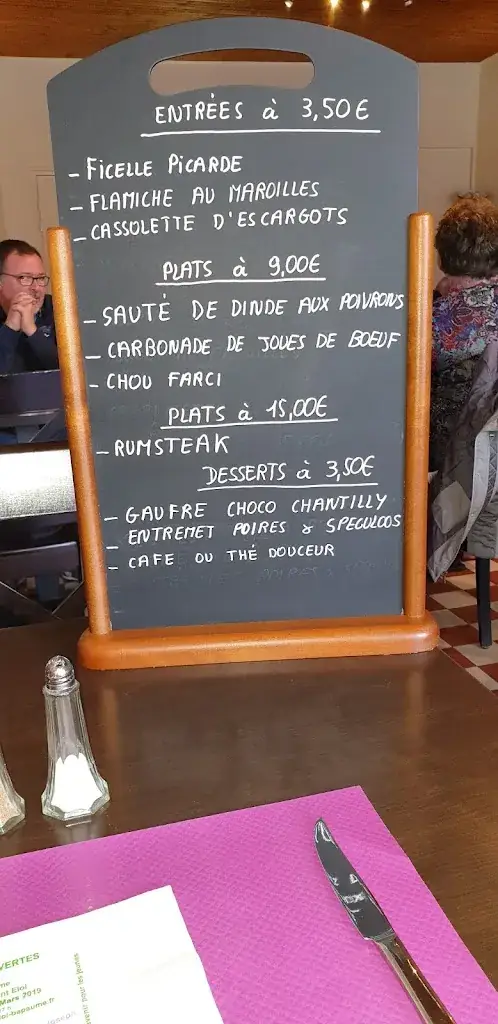 ENTRÉES à 3,50€
- FICELLE PICARDE
- FLAMICHE AU MAROILLES
- CASSOLETTE D'ESCARGOTS
PLATS à 9,00€
- SAUTÉ DE DINDE AUX POIVRONS
- CARBONADE DE JOUES DE BOEUF
- CHOU FARCI
PLATS à 15,00€
- RUMSTEAK
DESSERTS à 3,50€
- GAUFRE CHOCO CHANTILLY
- ENTREMET POIRES & SPECULOOS
- CAFE OU THÉ DOUCEUR
VERTES
nt Eloi
Mars 2019
or-bapaume.fr
avenir pour les jeunes